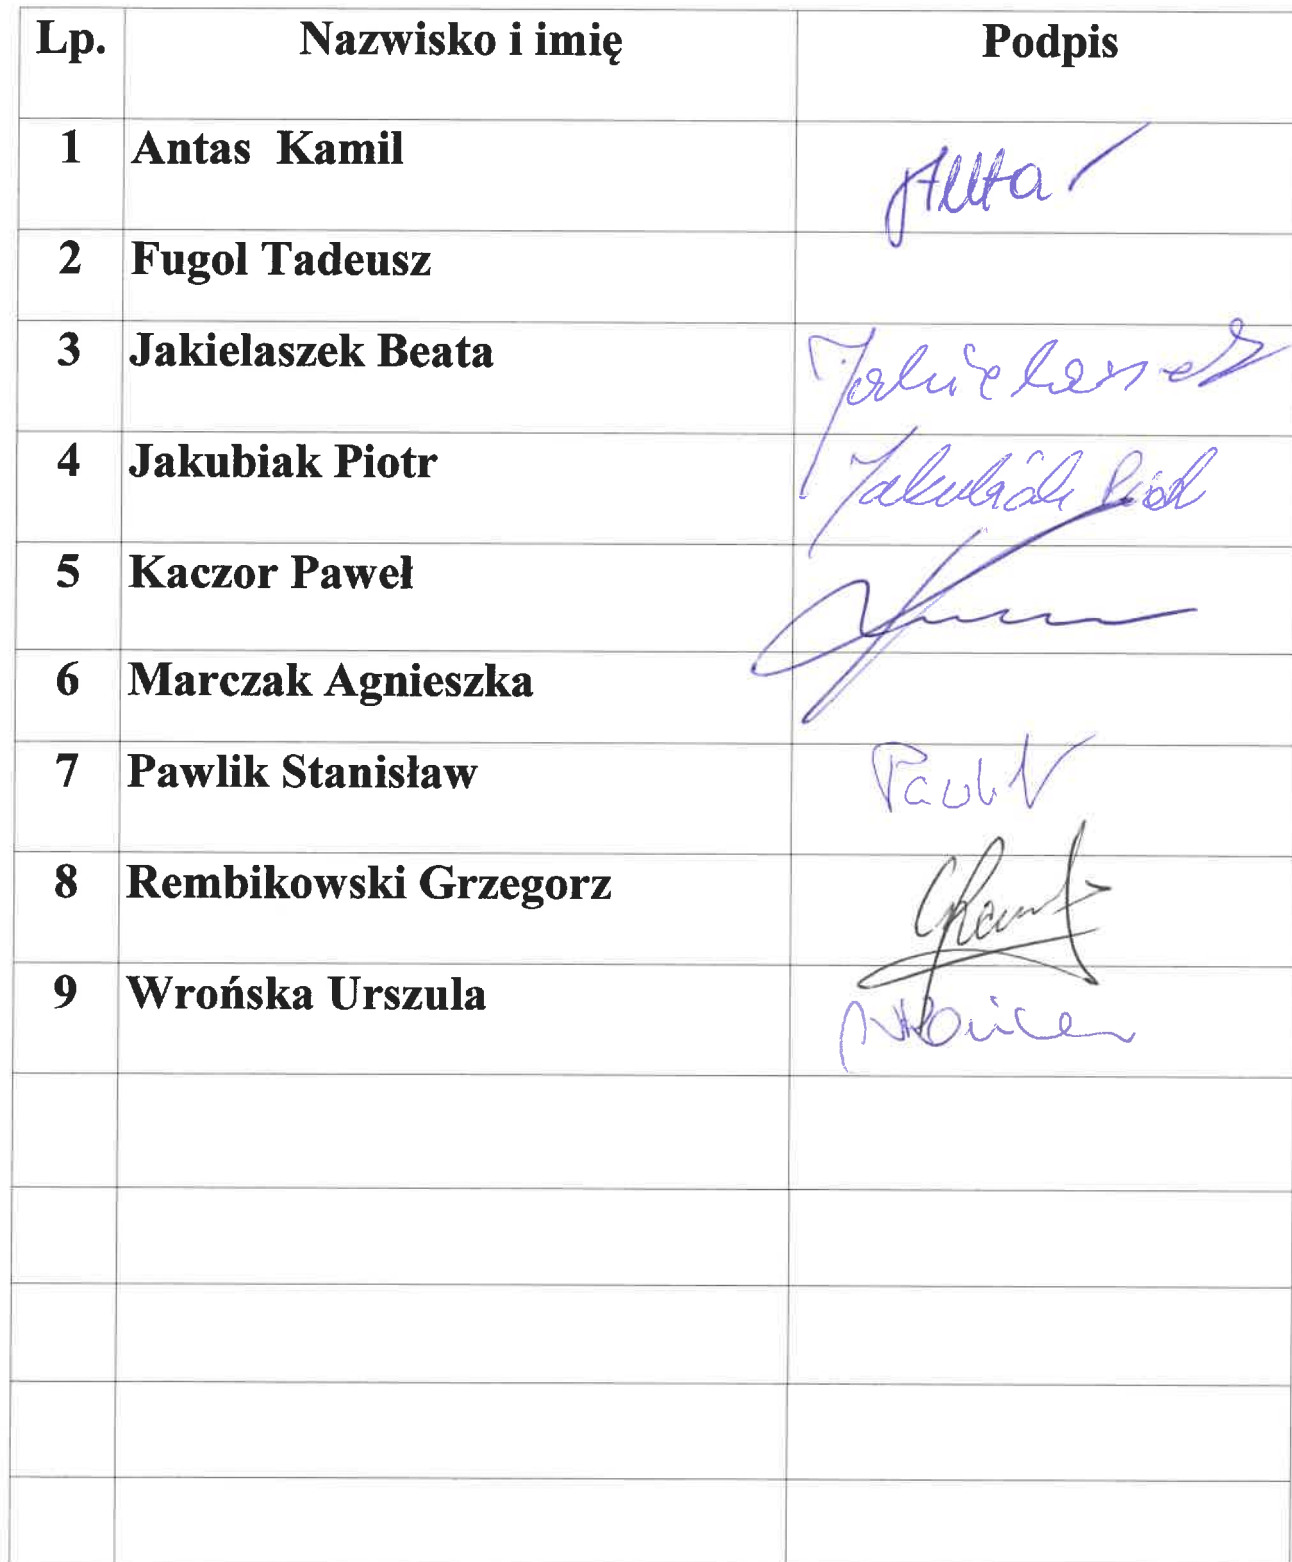 Lp. Nazwisko i imię Podpis
1 Antas Kamil
2 Fugol Tadeusz
3 Jakielaszek Beata Jakielaszek
4 Jakubiak Piotr Jakubiak Piotr
5 Kaczor Paweł
6 Marczak Agnieszka
7 Pawlik Stanisław Pawlik
8 Rembikowski Grzegorz
9 Wrońska Urszula